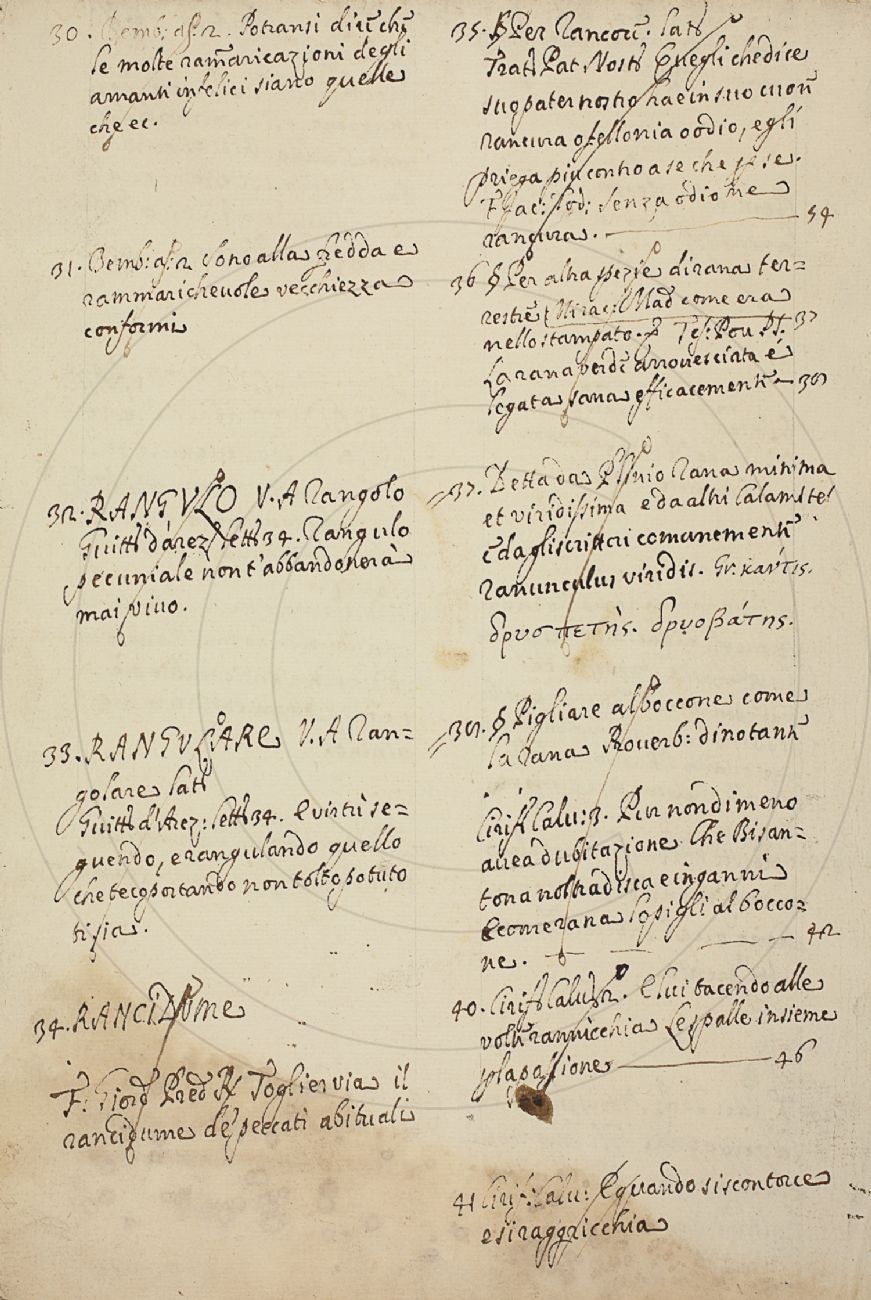 30. Bemb: as: 2. Potransi dire che
le molte rammaricazioni degli
amanti infelici siano quelle
che ec.
31. Bemb: as: 2 sono alla fredda e
rammaricheuole vecchiezza
conformi
32. RANGVLO V. A Rangolo
Guitt: d'arez: lett: 34. Rangulo
pecuniale non t'abbandonerà
mai viuo.
33. RANGVLARE V. A Ran=
golare lat:
Guitt: d'Arez: lett: 34. E virtù se=
guendo, e rangulando quello
che tecoportando non tolto potuto
ti sia.
34. RANCIDUme
F: Giord: Pred: R. Toglier via il
rancidume de' peccati abituali
35. § Per Rancore: lat:
Tratt: Pat. Nost: Quegli che dice
suo paternostro ha e in suo cuore
rancura o fellonia o odio, egli
priega più contro a se che per se.
F. Iac: Tod: senza odio ne
rangura. 54
36 § Per altra spezie di rana ter=
restre (Mirac: Mad: come era
nello stampato. § Tes: Pou. P. S. 37
La rana verde arrouesciata e
legata sana efficacemente 38
37. Detta da Plinio Rana minima
et viridissima e da altri Calamite
e dagli scrittori comunemente
ranunculus viridis. Gr:
δρυοπετὴς. δρυοβάτης.
39. § Pigliare al boccone come
la rana Prouerb: dinotante
Cirif: Calu: 3. Pur nondimeno
auea dubitazione Che Bisan=
tona nol tradisca e inganni
E come rana lo pigli al bocco=
ne. 42
40. Cirif: Calu: 2. E lui tacendo alle
volte rannicchia Le spalle insieme
p la passione 46
41 Cirif: Calu: E quando si scontorce
e si raggricchia